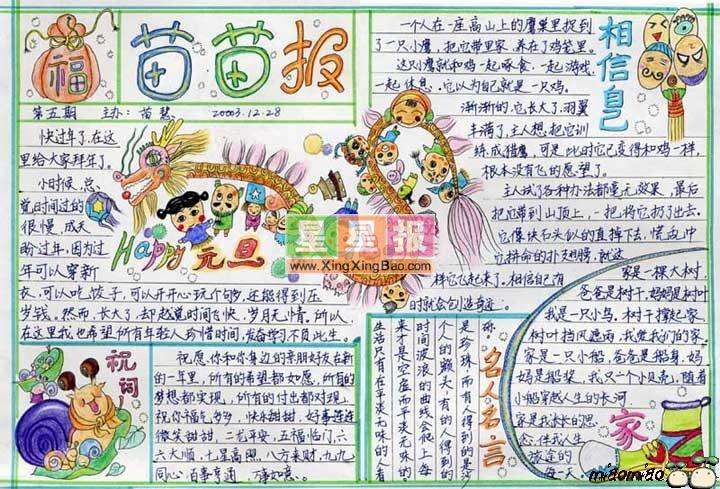 福
苗苗报
第五期 主办: 苗慧 20003.12.28
快过年了,在这
里给大家拜年了。
小时候,总
觉时间过的
很慢,成天
盼过年,因为过
年可以穿新
衣,可以吃饺子,可以开开心玩个够,还能得到压
岁钱。然而,长大了,却是觉时间飞快,岁月无情。所以,
在这里我也希望所有年轻人珍惜时间,发奋学习不负此生。
Happy 元旦
星星报
www.XingXingBao.com
相信自己
一个人在一座高山上的鹰巢里捉到
了一只小鹰,把它带回家,养在了鸡笼里。
这只鹰就和鸡一起啄食,一起游戏
一起休息,它以为自己就是一只鸡。
渐渐的,它长大了,羽翼
丰满了,主人想把它训
练成猎鹰,可是,此时它已变得和鸡一样,
根本没有飞的愿望了。
主人试了各种办法都毫无效果,最后
把它带到山顶上,一把将它扔了出去。
它像块石头似的直掉下去,慌乱中
它拼命的扑打翅膀,就这
样它飞起来了。相信自己有
时就会创造奇迹。
祝词
祝愿你和你身边的亲朋好友在新
的一年里,所有的希望都如愿,所有的
梦想都实现,所有的付出都对现。
祝你福气多多,快乐甜甜,好事连连
微笑甜甜,二龙平安,五福临门,六
六大顺,七星高照,八方来财,九九
同心,百事亨通,万事如意。
名人名言
是珍珠,而有人得到的是沙
个人的额头,有的人得到的
时间波浪的曲线会爬上每
来才是空虚而平淡无味的。
生活只有在平淡无味的人看
家
家是一棵大树,
爸爸是树干,妈妈是树枝
我是一只小鸟,树干撑起家
树叶挡风遮雨,我爱我们的家。
家是一只小船,爸爸是船身,妈
妈是船桨,我只一个小贝壳,随着
小船穿越人生的长河
家是我永恒的思
念,伴我人生
旅途的
每一天。
miaomiao